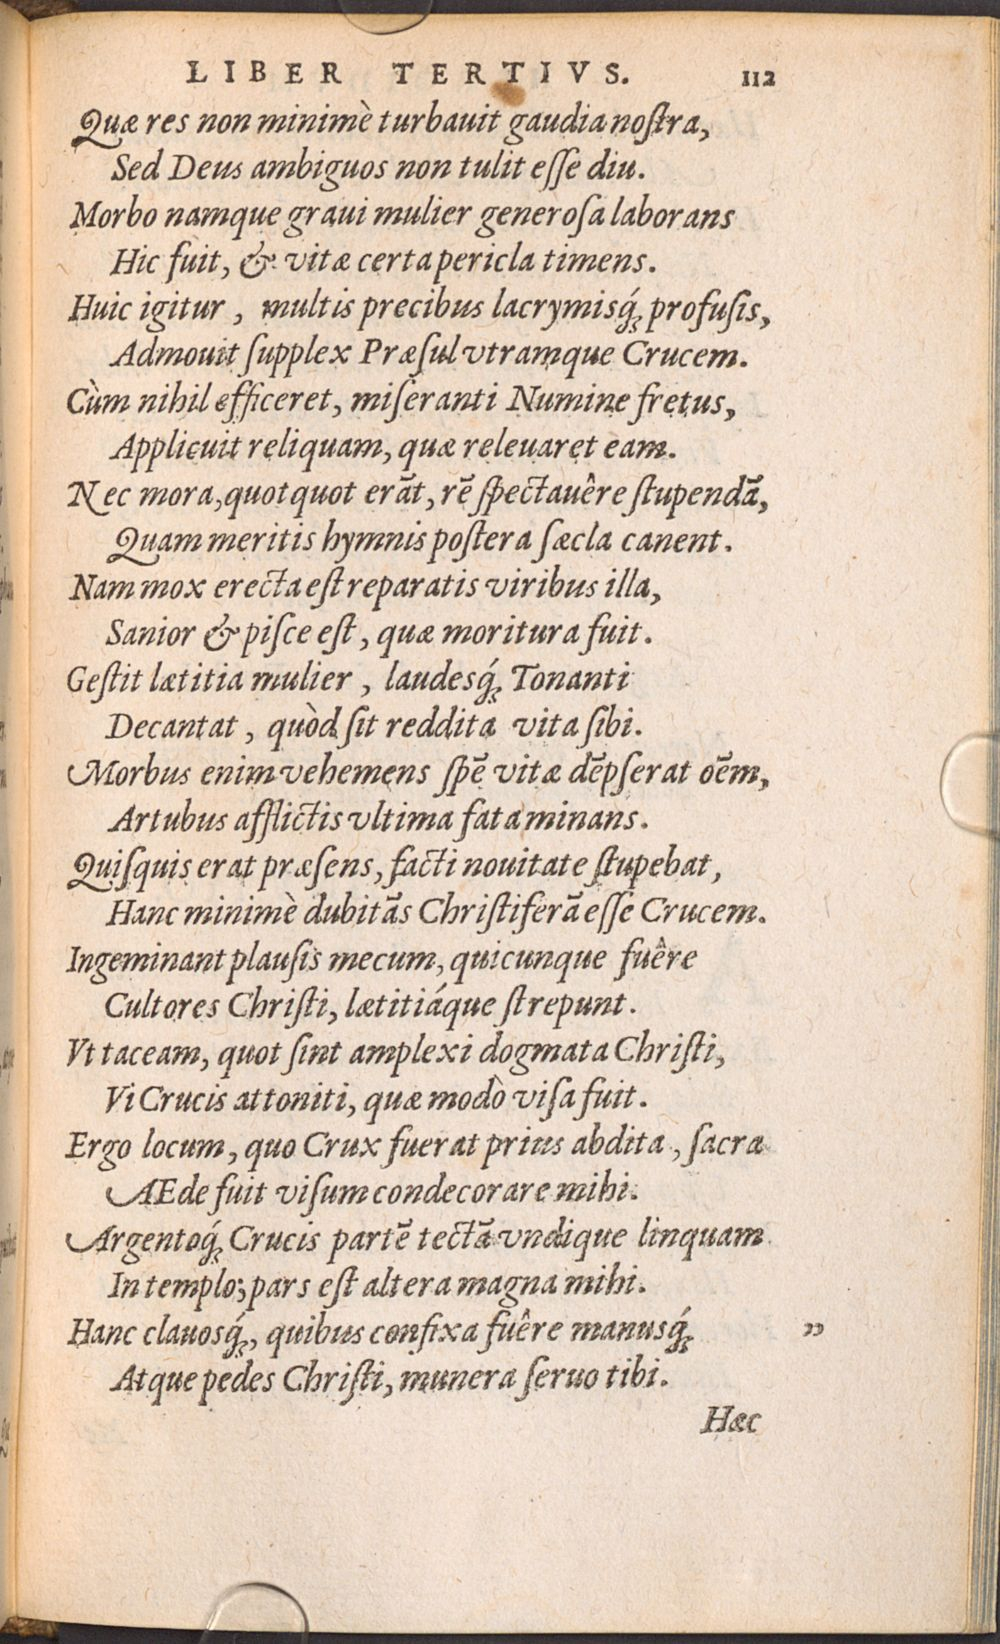 LIBER TERTIVS. 112
Quæ res non minimè turbauit gaudia noſtra,
Sed Deus ambiguos non tulit eſſe diu.
Morbo namque graui mulier generoſa laborans
Hic fuit, & vitæ certa pericla timens.
Huic igitur, multis precibus lacrymisq́; profuſis,
Admouit ſupplex Præſul vtramque Crucem.
Cùm nihil efficeret, miſeranti Numine fretus,
Applicuit reliquam, quæ releuaret eam.
Nec mora, quotquot erāt, rē ſpectauêre ſtupendā,
Quam meritis hymnis poſtera ſæcla canent.
Nam mox erecta eſt reparatis viribus illa,
Sanior & piſce eſt, quæ moritura fuit.
Geſtit lætitia mulier, laudesq́; Tonanti
Decantat, quòd ſit reddita vita ſibi.
Morbus enim vehemens ſpē vitæ dēpſerat oēm,
Artubus afflictis vltima fata minans.
Quiſquis erat præſens, facti nouitate ſtupebat,
Hanc minimè dubitās Chriſtiferā eſſe Crucem.
Ingeminant plauſis mecum, quicunque fuêre
Cultores Chriſti, lætitiáque ſtrepunt.
Vt taceam, quot ſint amplexi dogmata Chriſti,
Vi Crucis attoniti, quæ modò viſa fuit.
Ergo locum, quo Crux fuerat prius abdita, ſacra
AEde fuit viſum condecorare mihi.
Argentoq́; Crucis partē tectā vndique linquam
In templo; pars eſt altera magna mihi.
Hanc clauosq́;, quibus confixa fuêre manusq́; ”
Atque pedes Chriſti, munera ſeruo tibi.
Hæc